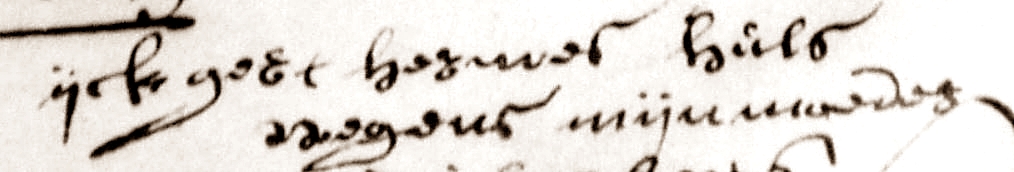 ijck gert hermes huls
wegens mijn moeder